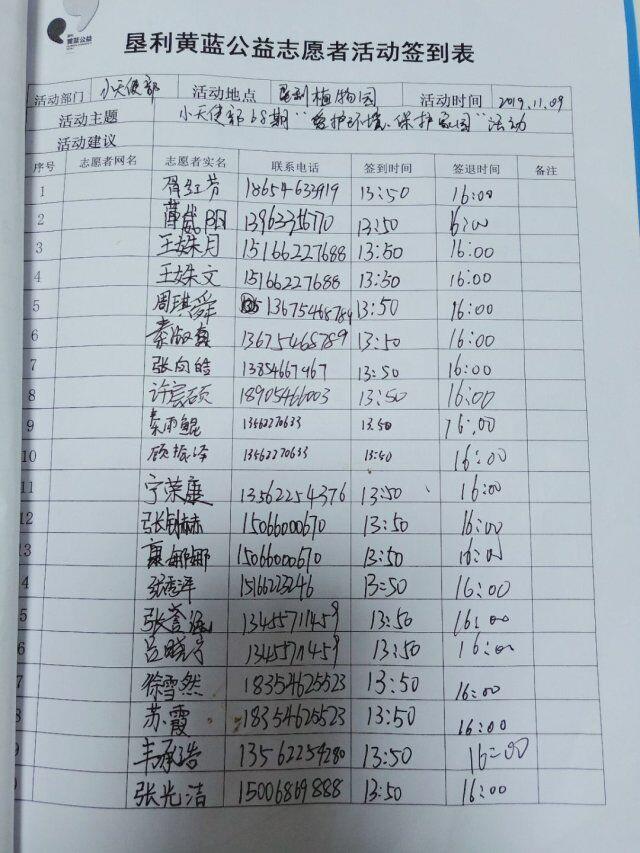 黄蓝公益
垦利黄蓝公益志愿者活动签到表
活动部门 小天使部 活动地点 垦利植物园 活动时间 2019.11.09
活动主题 小天使部68期“爱护环境、保护家园”活动
活动建议
序号 志愿者网名 志愿者实名 联系电话 签到时间 签退时间 备注
1 18654633919 13:50 16:00
2 13963356770 13:50 16:00
3 王姝月 15166227688 13:50 16:00
4 王姝文 15166227688 13:50 16:00
5 周琪舜 13675468789 13:50 16:00
6 秦淑真 13675468789 13:50 16:00
7 张向皓 13854667467 13:50 16:00
8 许宸硕 18905466003 13:50 16:00
9 秦雨鲲 13562270633 13:50 16:00
10 顾振泽 13562270633 13:50 16:00
11 宁荣康 13562254376 13:50 16:00
12 15066000670 13:50 16:00
13 康娜娜 15066000670 13:50 16:00
4 15166223246 13:50 16:00
5 张荟涵 13455711459 13:50 16:00
6 吕晓亭 13455711459 13:50 16:00
7 徐雪然 18354625523 13:50 16:00
8 苏霞 18354625523 13:50 16:00
9 丰承浩 13562259280 13:50 16:00
张光洁 15006869888 13:50 16:00